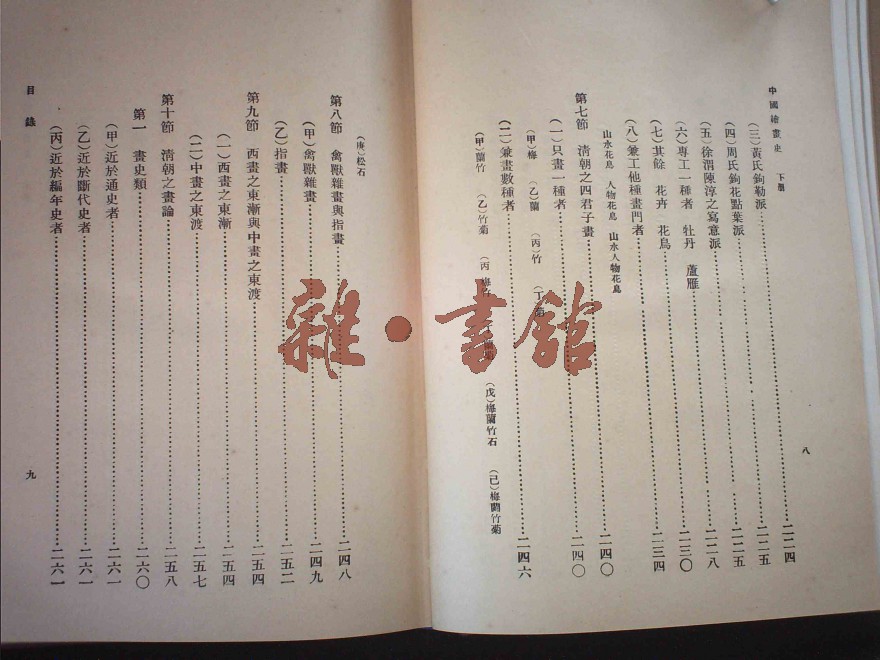 中國繪畫史 下册
八
(三)黃氏鉤勒派……二二四
(四)周氏鉤花點葉派……二二五
(五)徐渭陳淳之寫意派……二二八
(六)專工一種者 牡丹 蘆雁……二三〇
(七)其餘 花卉 花鳥……二三四
(八)兼工他種畫門者
山水花鳥 人物花鳥 山水人物花鳥……二四〇
第七節 清朝之四君子畫……二四〇
(一)只畫一種者
(甲)梅 (乙)蘭 (丙)竹 (丁)菊
(二)兼畫數種者……二四六
(甲)蘭竹 (乙)竹菊 (丙)梅竹 (戊)梅蘭竹石 (己)梅蘭竹菊
(庚)松石
第八節 禽獸雜畫與指畫……二四八
(甲)禽獸雜畫……二四九
(乙)指畫……二五二
第九節 西畫之東漸與中畫之東渡……二五四
(一)西畫之東漸……二五四
(二)中畫之東渡……二五七
第十節 清朝之畫論……二五八
第一 畫史類……二六〇
(甲)近於通史者……二六一
(乙)近於斷代史者……二六一
(丙)近於編年史者……二六一
目錄
九
雜·書館